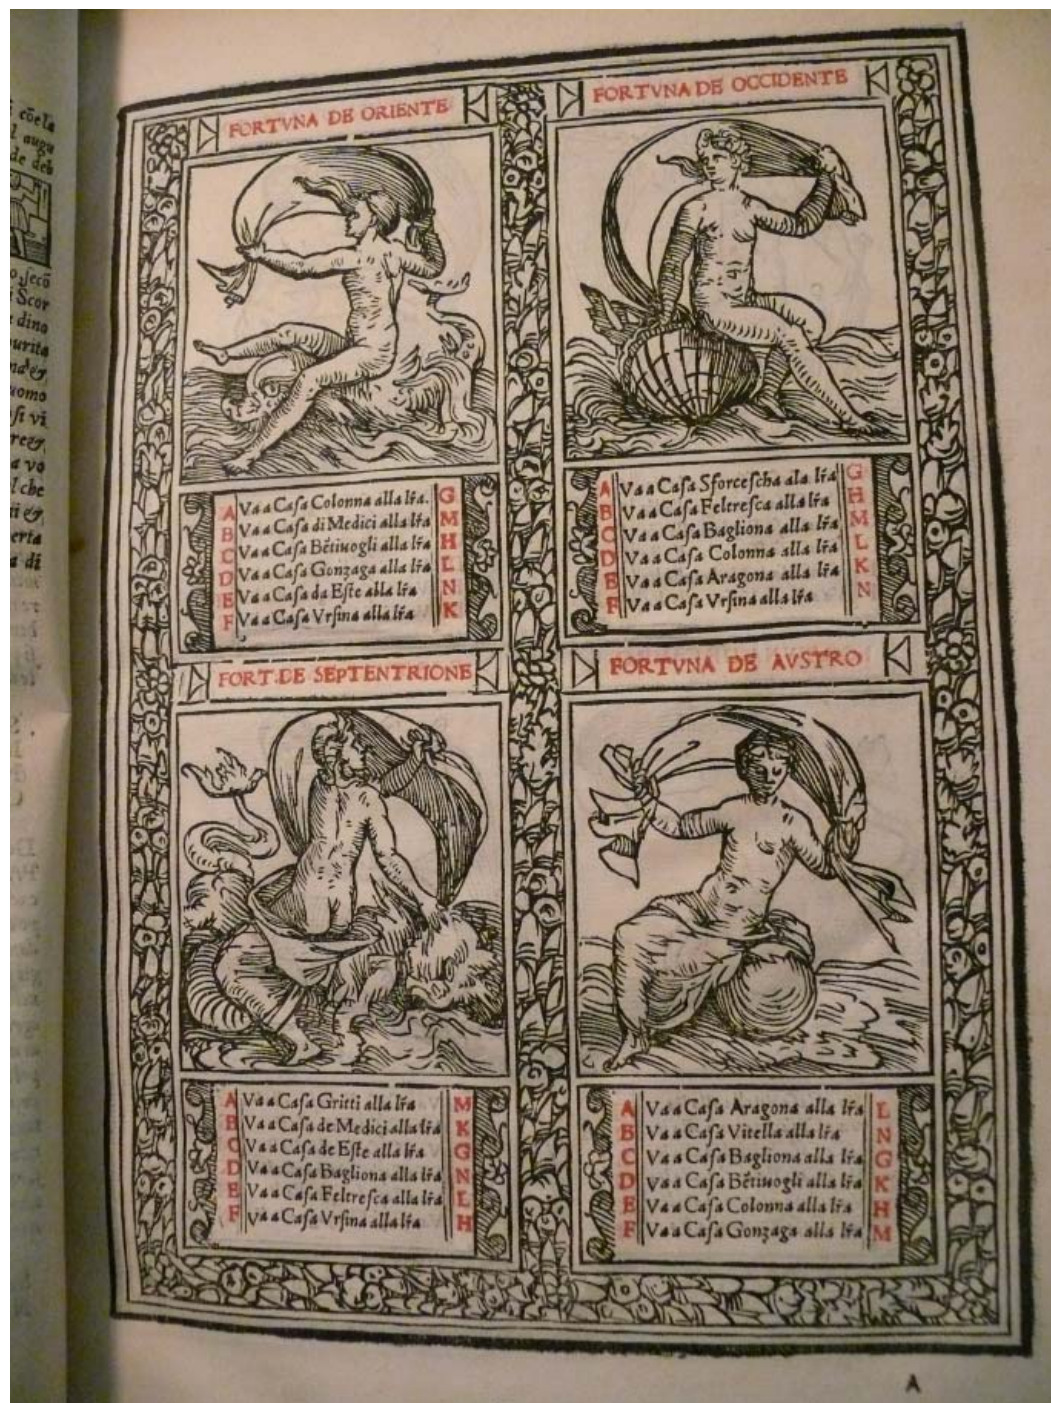 cōela
augu
de deb
secō
Scor
dino
purita
uomo
vo
l che
erta
a di
FORTVNA DE ORIENTE
A Va a Casa Colonna alla lr̄a. G
B Va a Casa di Medici alla lr̄a M
C Va a Casa Bētiuogli alla lr̄a H
D Va a Casa Gonzaga alla lr̄a L
E Va a Casa da Este alla lr̄a N
F Va a Casa Vrsina alla lr̄a K
FORTVNA DE OCCIDENTE
A Va a Casa Sforcescha ala lr̄a G
B Va a Casa Feltresca alla lr̄a H
C Va a Casa Bagliona alla lr̄a M
D Va a Casa Colonna alla lr̄a L
E Va a Casa Aragona alla lr̄a K
F Va a Casa Vrsina alla lr̄a N
FORT.DE SEPTENTRIONE
A Va a Casa Gritti alla lr̄a M
B Va a Casa de Medici alla lr̄a K
C Va a Casa de Este alla lr̄a G
D Va a Casa Bagliona alla lr̄a N
E Va a Casa Feltresca alla lr̄a L
F Va a Casa Vrsina alla lr̄a H
FORTVNA DE AVSTRO
A Va a Casa Aragona alla lr̄a L
B Va a Casa Vitella alla lr̄a N
C Va a Casa Bagliona alla lr̄a G
D Va a Casa Bētiuogli alla lr̄a K
E Va a Casa Colonna alla lr̄a H
F Va a Casa Gonzaga alla lr̄a M
A